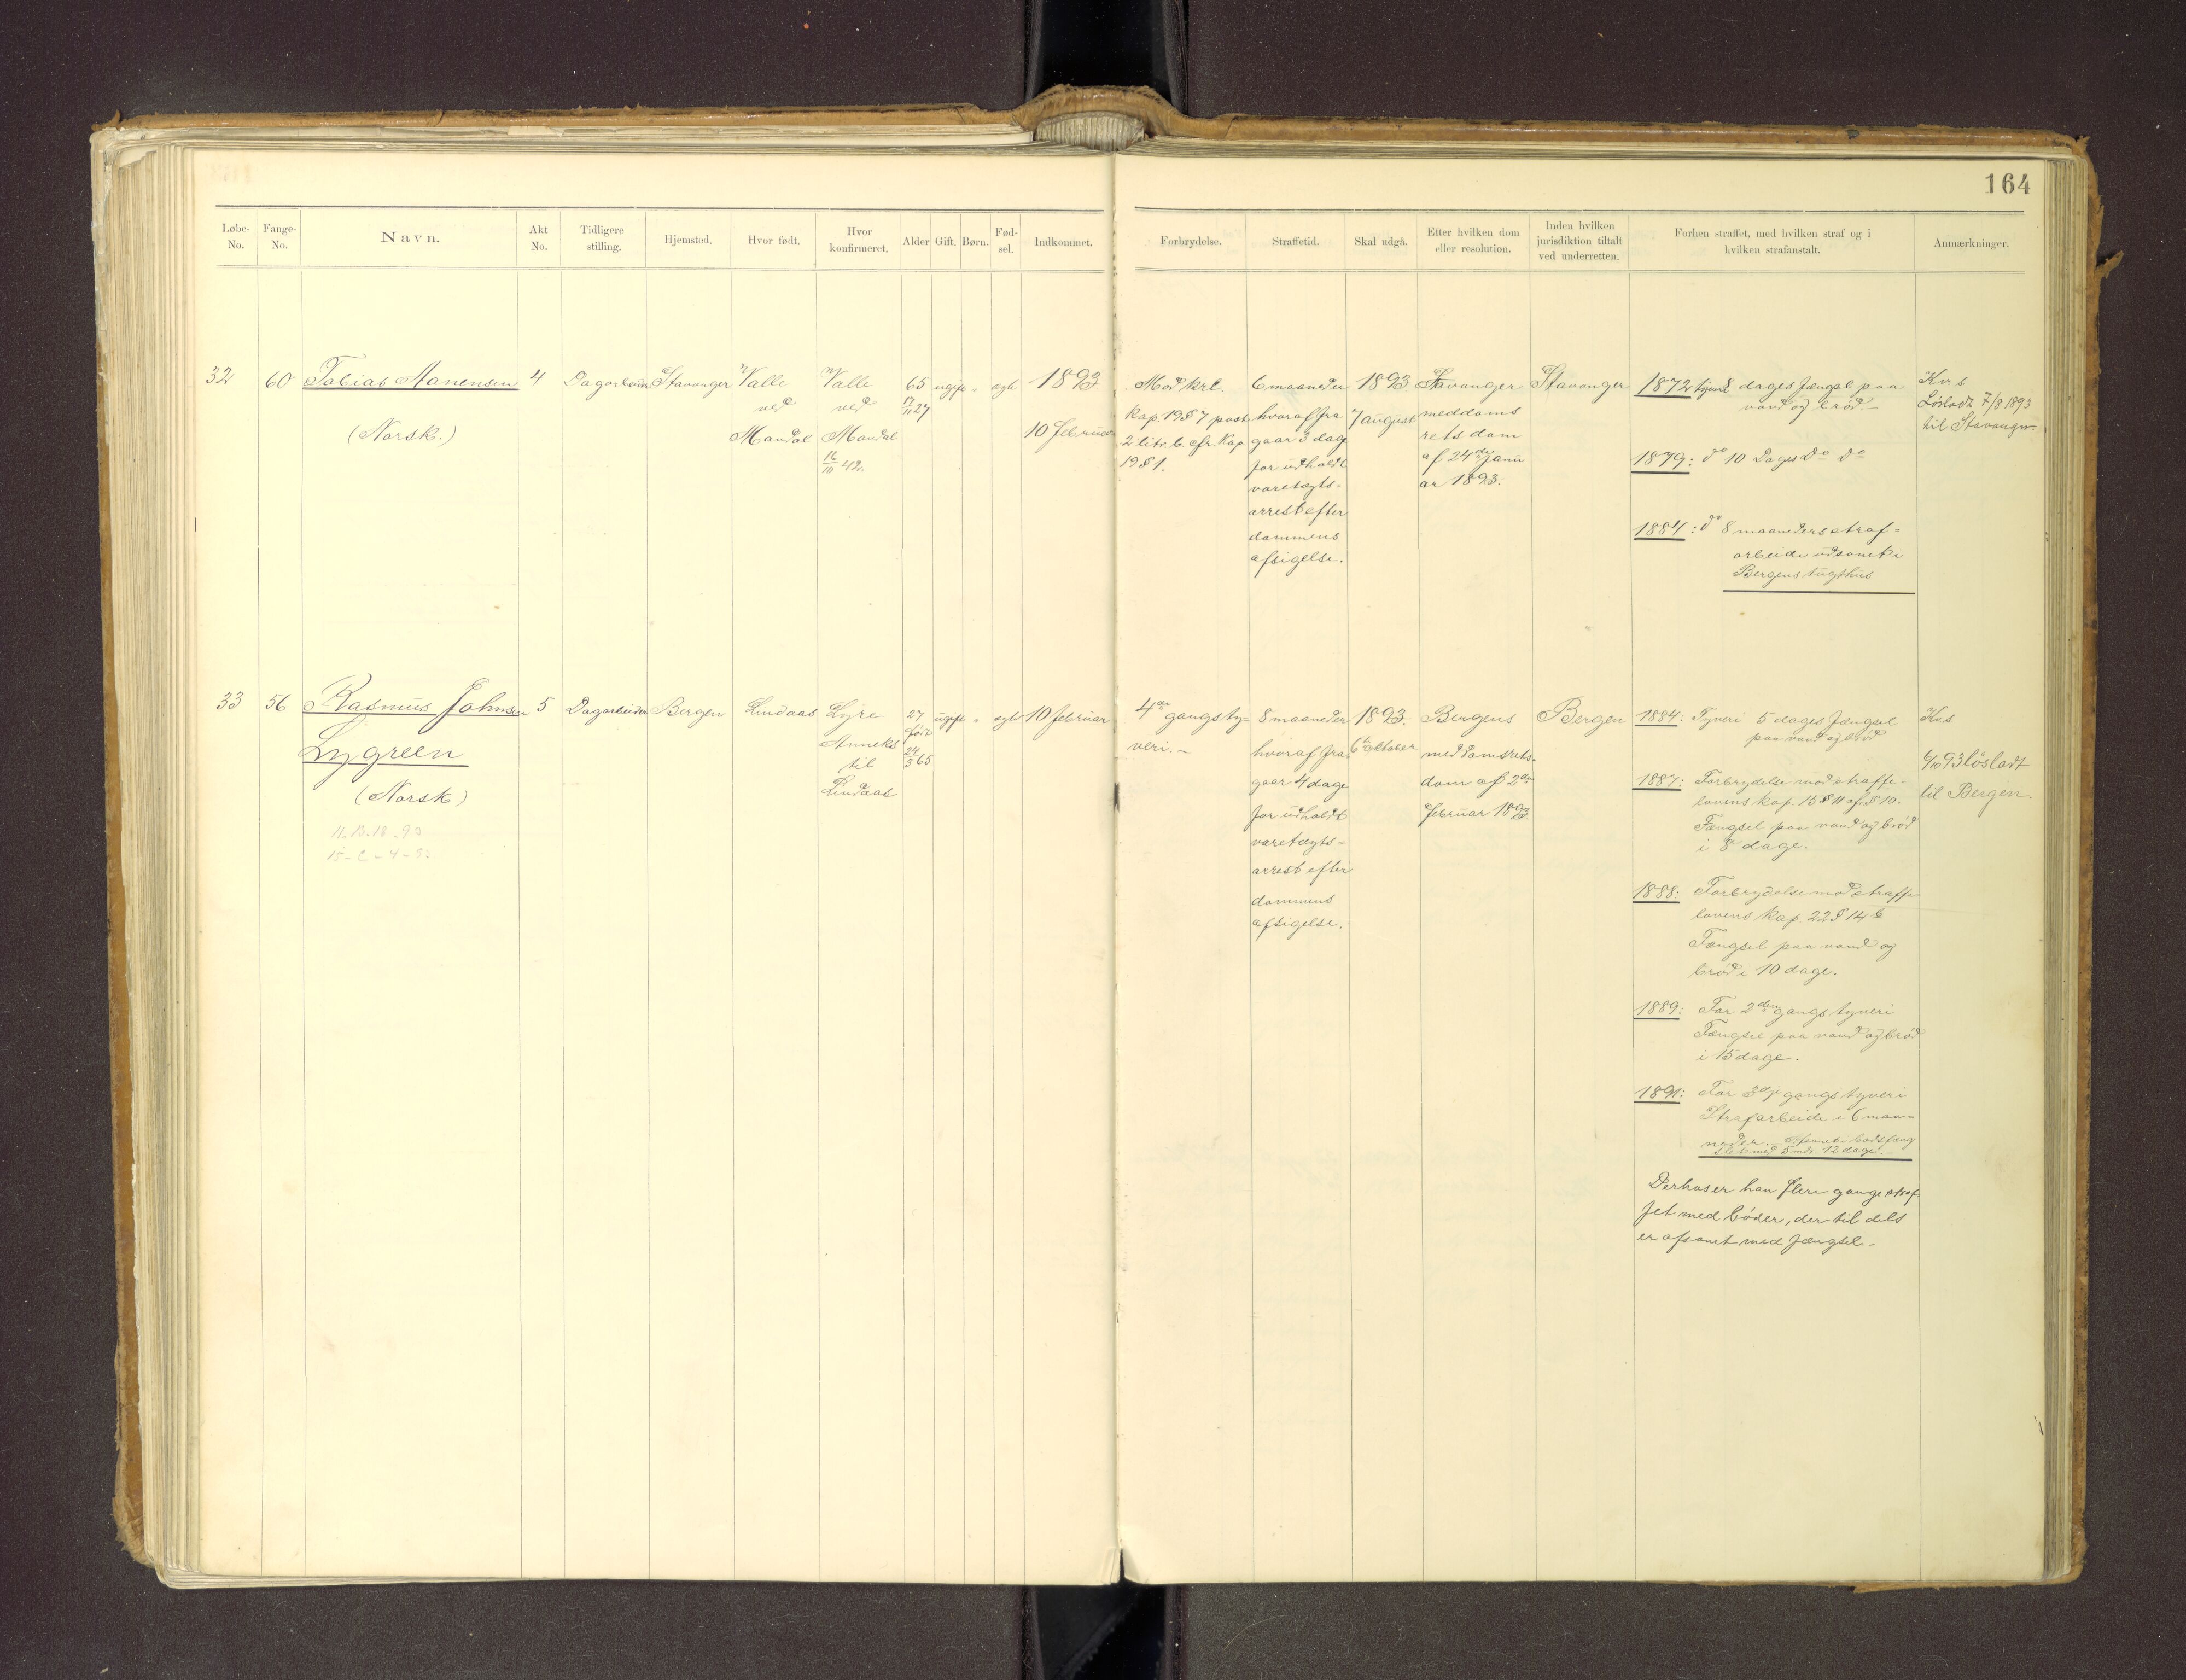 164
Løbe-No.
Fange-No.
Navn.
Akt No.
Tidligere stilling.
Hjemsted.
Hvor født.
Hvor konfirmeret.
Alder
Gift.
Børn.
Fødsel.
Indkommet.
Forbrydelse.
Straffetid.
Skal udgå.
Efter hvilken dom eller resolution.
Inden hvilken jurisdiktion tiltalt ved underretten.
Forhen straffet, med hvilken straf og i hvilken strafanstalt.
Anmærkninger.
32
60
Tobias Aanensen
(Norsk.)
4
Dagarbeider
Stavanger
Valle
ved
Mandal
Valle
ved
Mandal
16/10 42.
65
17/11 27
ugift
"
egte
1893
10 februar
Mod krl.
Kap. 19 § 7 post
2 litr. b cfr. Kap.
19 § 1.
6 maaneder
hvoraf fra
gaar 3 dage
for udholdt
varetægts=
arrest efter
dommens
afsigelse.
1893
7 august
Stavanger
meddoms
rets dom
af 24de janu
ar 1893.
Stavanger
1872 tyveri 8 dages fængsel paa
vand og brød.—
1879: do 10 Dages Do Do
1884: do 8 maaneders straf=
arbeide udsonet i
Bergens tugthus
Kv. s
Løsladt 7/8 1893
til Stavanger.
33
56
Rasmus Johnsen
Lygreen
(Norsk)
5
Dagarbeider
Bergen
Lindaas
Lyre
Anneks
til
Lindaas
27
født
24/3 65
ugift
"
egte
10 februar
4de gangs ty=
veri.—
8 maaneder
hvoraf fra
gaar 4 dage
for udholdt
varetægts=
arrest efter
dommens
afsigelse.
1893.
6te oktober
Bergens
meddomsrets=
dom af 2den
februar 1893
Bergen
1884: Tyveri 5 dages fængsel
paa vand og brød
1887: Forbrydelse mod straffe=
lovens kap. 15 § 11 cf. § 10.
Fængsel paa vand og brød
i 8 dage.
1888: Forbrydelse mod straffe
lovens Kap. 22 § 14 b
Fængsel paa vand og
brød i 10 dage.
1889: For 2den gangs tyveri
Fængsel paa vand og brød
i 15 dage.
1891: For 3dje gangs tyveri
Strafarbeide i 6 maa=
neder.— Afsonet i bodsfæng
slet med 5 mdr. 12 dage.
Derhos er han flere gange straf
fet med bøder, der til dels
er afsonet med fængsel—
Kv. s
6/10 93 løsladt
til Bergen